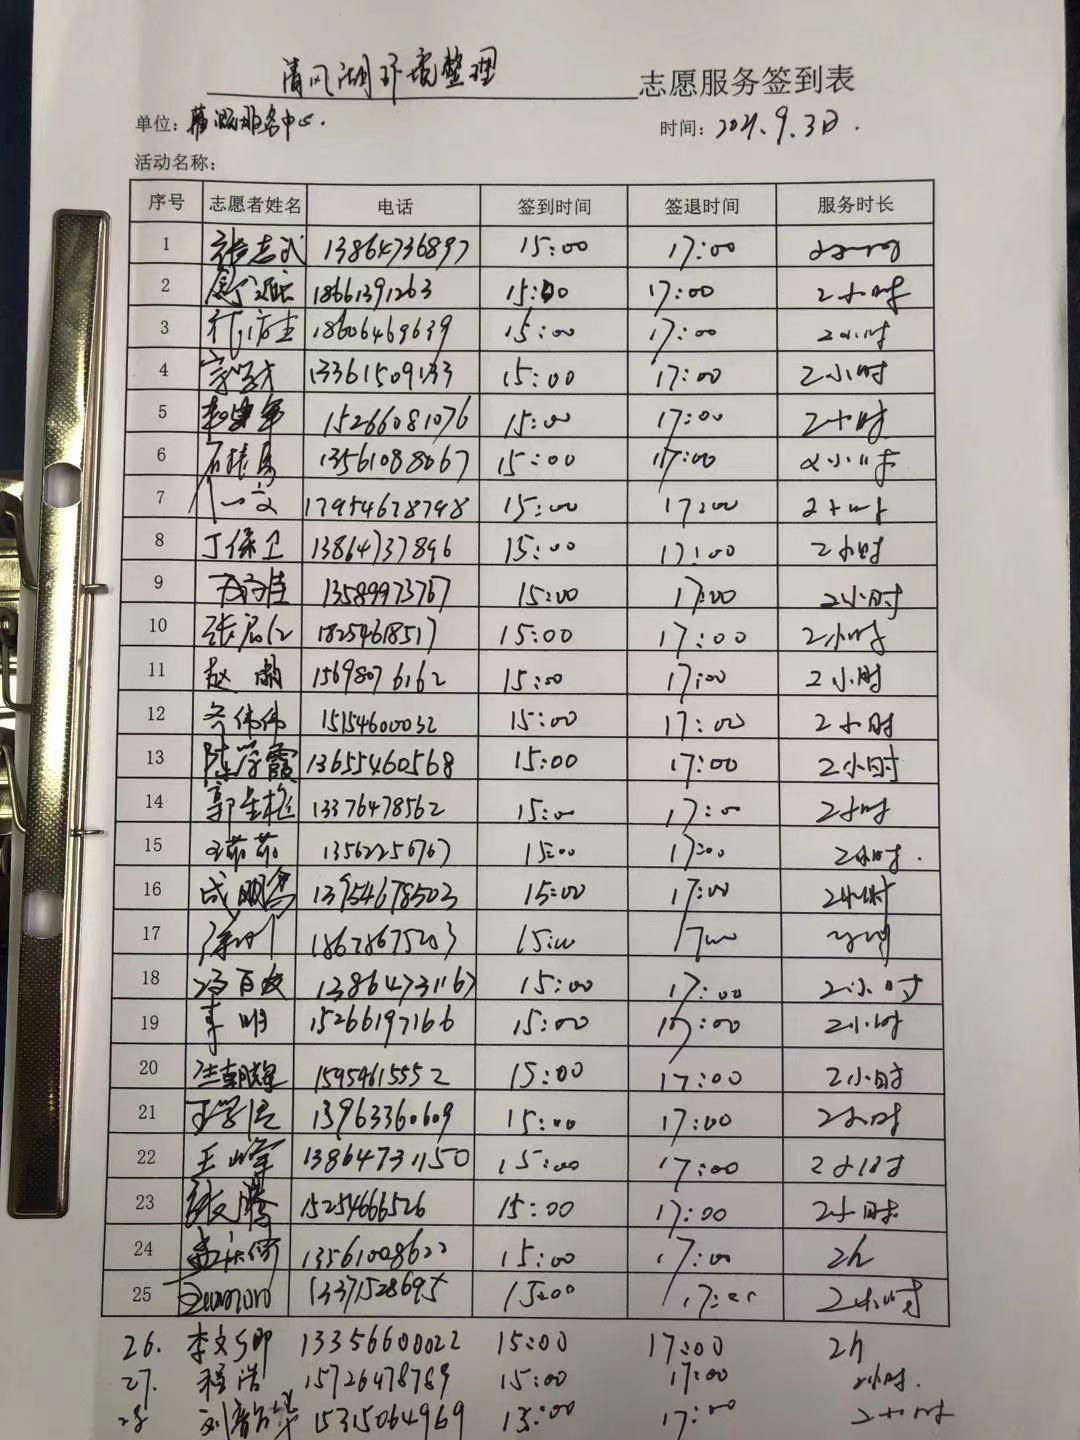 清风湖环境整理 志愿服务签到表
单位: 服务中心. 时间: 2021.9.3日.
活动名称:
序号 志愿者姓名 电话 签到时间 签退时间 服务时长
1 张志武 13864736897 15:00 17:00
2 18661391263 15:00 17:00 2小时
3 18606469639 15:00 17:00 2小时
4 13361509133 15:00 17:00 2小时
5 15266081076 15:00 17:00 2小时
6 13561088067 15:00 17:00 2小时
7 17954678798 15:00 17:00 2小时
8 丁保卫 13864737896 15:00 17:00 2小时
9 13589973767 15:00 17:00 2小时
10 18254618517 15:00 17:00 2小时
11 赵 15698076162 15:00 17:00 2小时
12 伟伟 15154600032 15:00 17:00 2小时
13 陈学霞 13655460568 15:00 17:00 2小时
14 13376478562 15:00 17:00 2小时
15 王茹茹 13562256767 15:00 17:00 2小时.
16 成鹏 13954678503 15:00 17:00 2小时
17 18678675203 15:00 17:00
18 冯百 13864731167 15:00 17:00 2小时
19 李明 15266197166 15:00 17:00 2小时
20 朝辉 15954615552 15:00 17:00 2小时
21 王学 13963360609 15:00 17:00 2小时
22 王峰 13864731150 15:00 17:00 2小时
23 张腾 15254666526 15:00 17:00 2小时
24 13561008622 15:00 17:00 2h
25 13371528695 15:00 17:00 2小时
26. 李文卿 13356600022 15:00 17:00 2h
27. 程浩 15726478789 15:00 17:00 2小时.
28 刘 15315064969 15:00 17:00 2小时